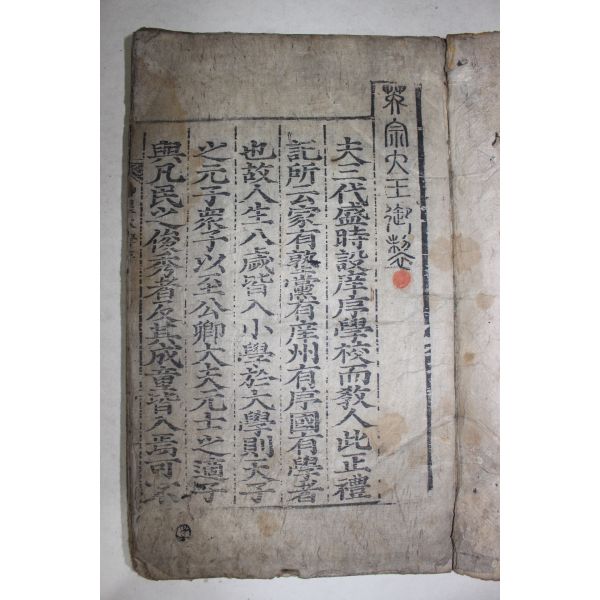 英宗大王御製
夫三代盛時設庠序學校而敎人此正禮
記所云家有塾黨有庠州有序國有學者
也故人生八歲皆入小學於大學則天子
之元子衆子以至公卿大夫元士之適子
與凡民之俊秀者及其成童皆入焉可不